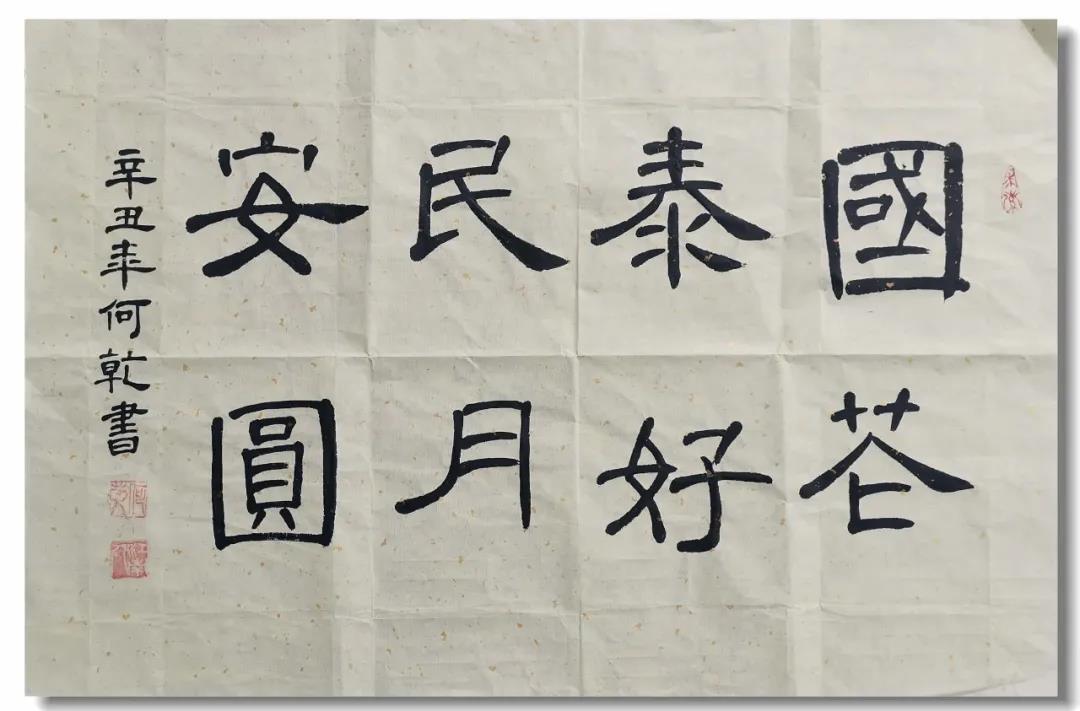 國泰民安
花好月圓
辛丑年何乾書